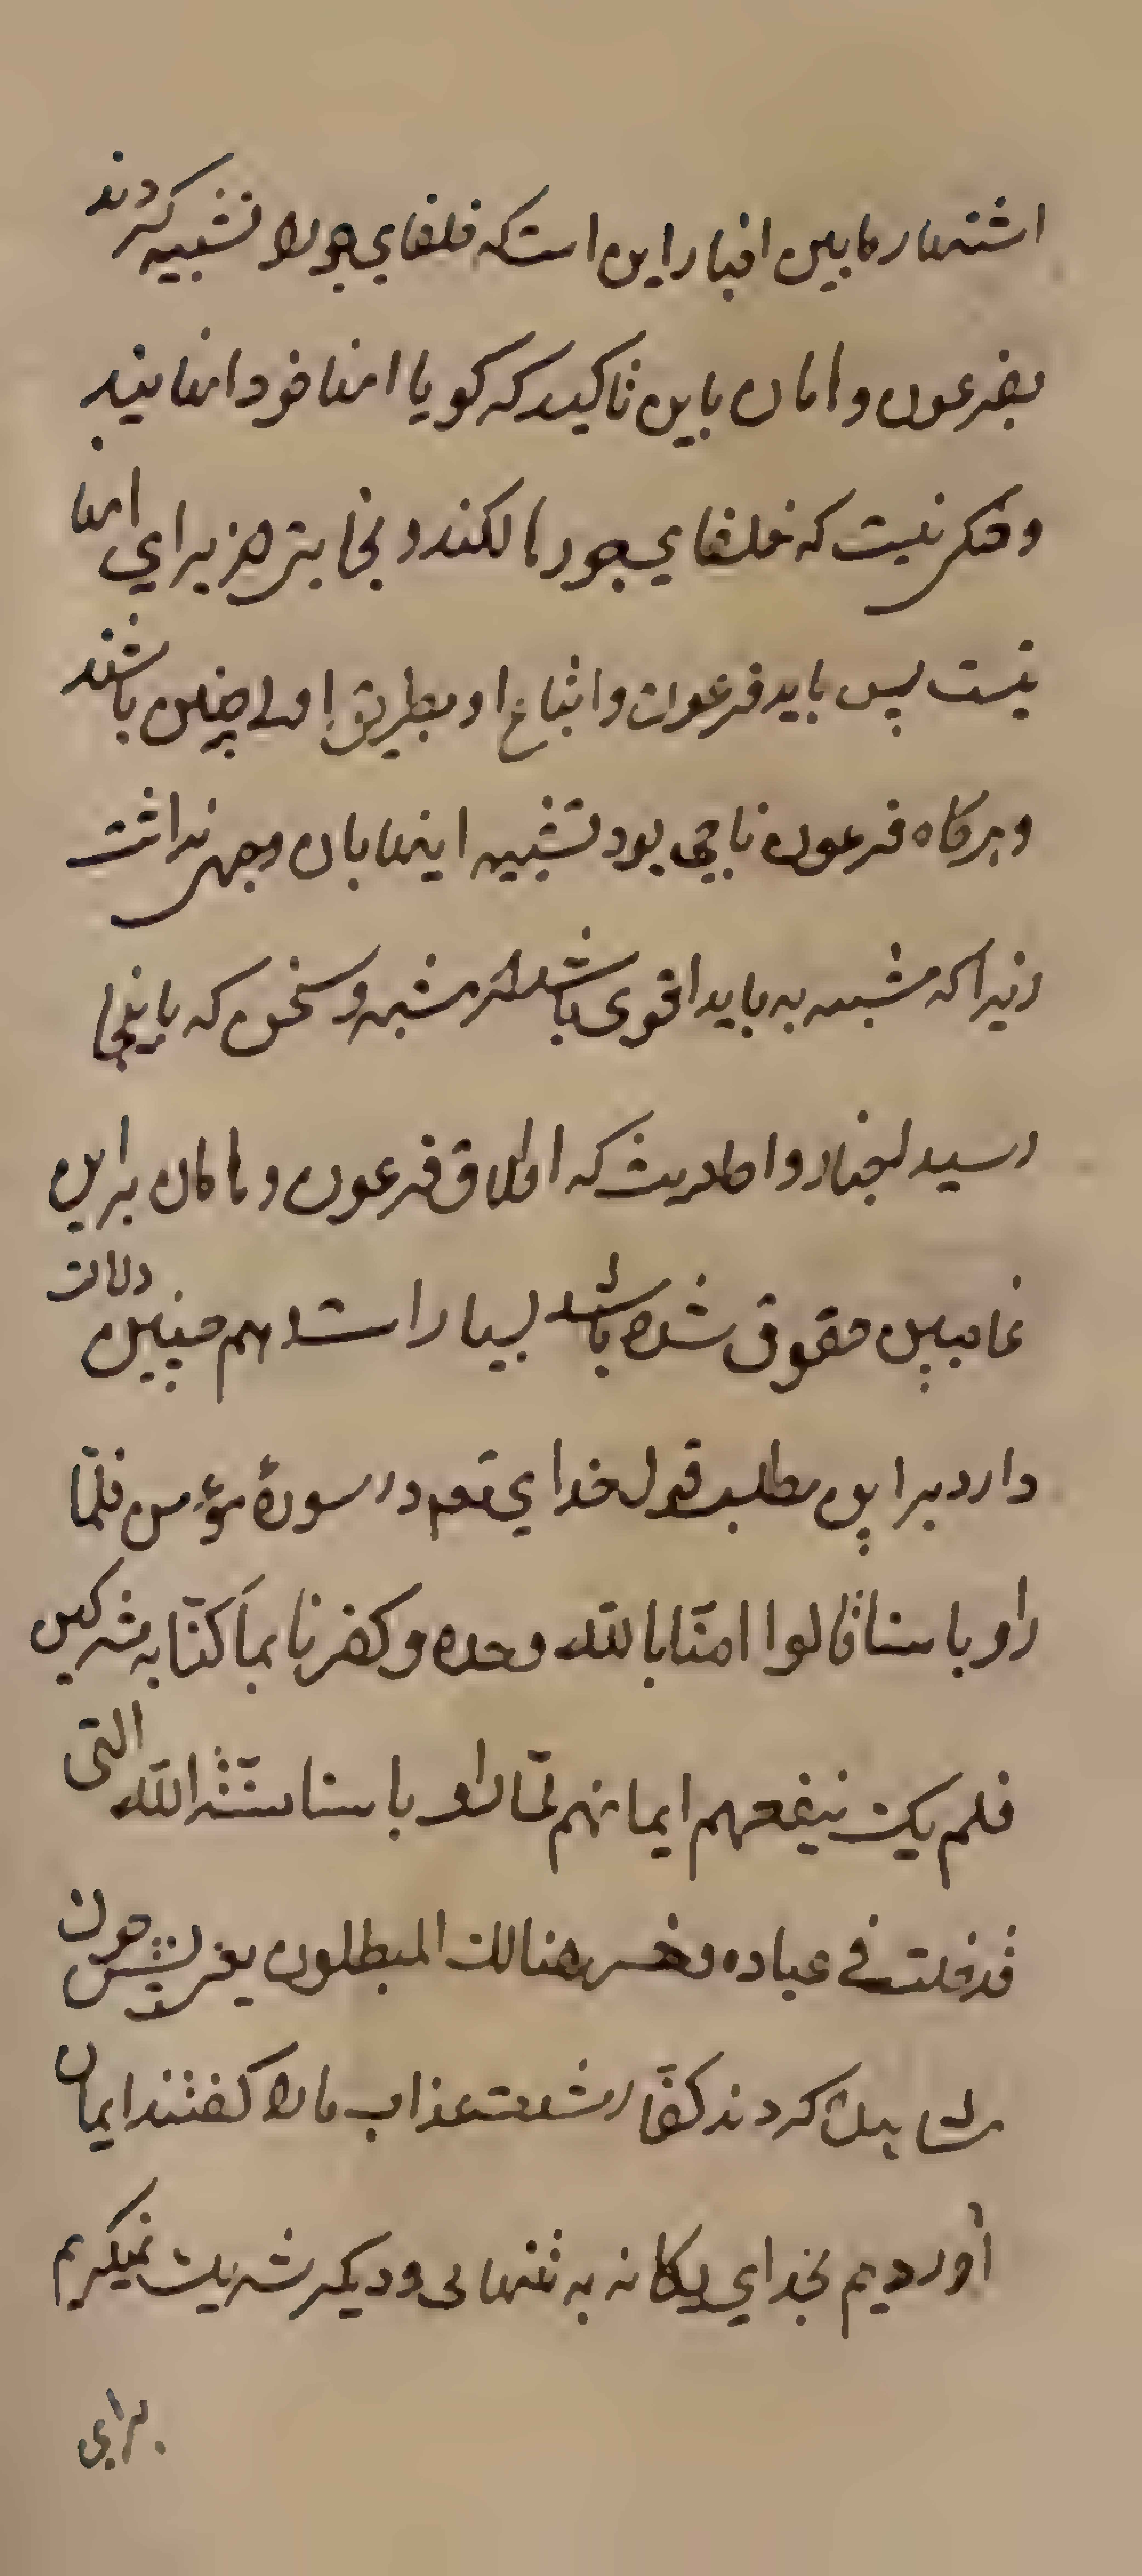 اشتهار مابین اخبار این است که خلفای جور را تشبیه کردند
بفرعون و هامان باین تاکید که کویا اینها خود انهایند
و شکی نیست که خلفای جور هالکند و نجاتی هرکز برای انها
نیست پس باید فرعون و اتباع او بطریق اولی چنین باشند
و هرکاه فرعون ناجی بود تشبیه اینها بان وجهی نداشت
زیرا که مشبه به باید اقوی باشد از مشبه و سخن که باینجا
رسید اخبار و احادیث که اطلاق فرعون و هامان براین
غاصبین حقوق شده باشد بسیار است و هم چنین دلالت
دارد براین مطلب قول خدای تعم در سورهٔ مؤمن فلمّا
راو باسنا قالوا امنّا باللّه وحده و کفرنا بما کنّا به مشرکین
فلم یک ینفعهم ایمانهم لمّا راو باسنا سنّة اللّه التی
قد خلت فی عباده و خسر هنالک المبطلون یعنی پس چون
مشاهده کردند کفّار شدت عذاب ما را کفتند ایمان
آوردیم بخدای یکانه به تنهائی و دیکر شریک نمیکیریم
برای